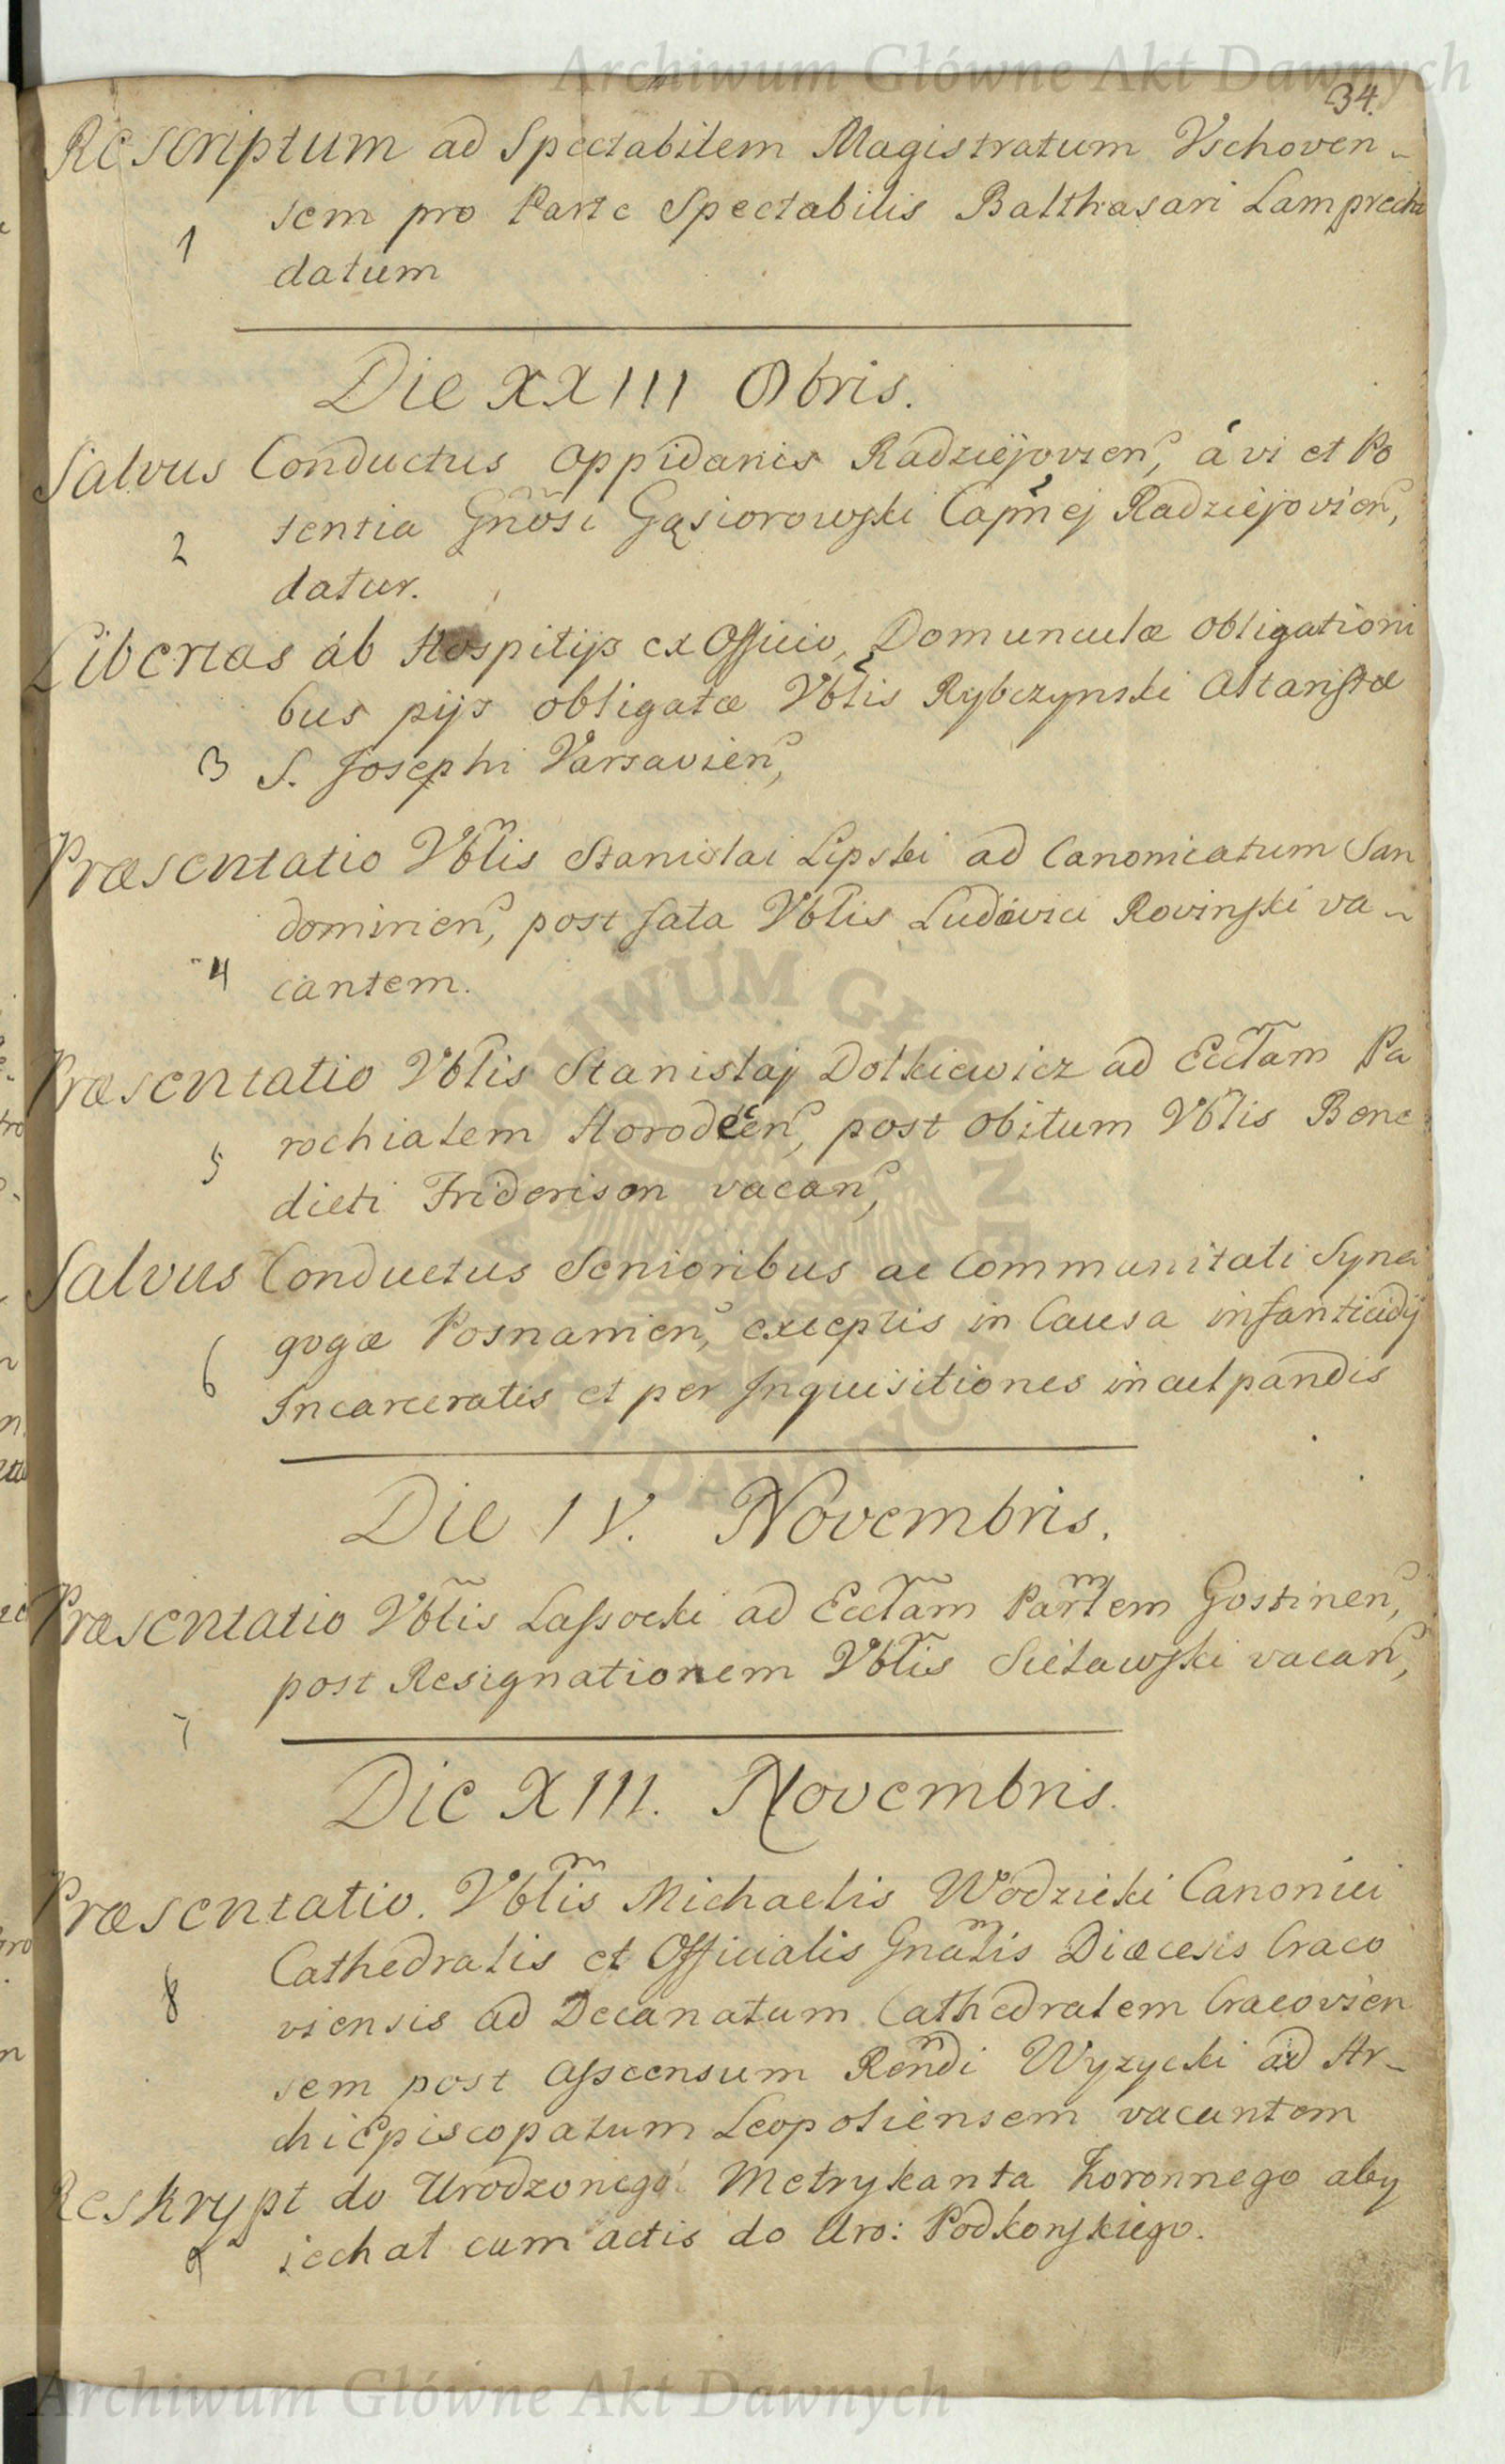 Archiwum Główne Akt Dawnych
34.
Rescriptum ad Spectabilem Magistratum Vschoven-
sem pro Parte Spectabilis Balthasari Lamprecht
1
datum
Die XXIII 8bris.
Salvus Conductus Oppidanis Radziejovien, á vi et Po
tentia Gnosi Gąsiorowski Capnej Radziejovien,
2
datur.
Libertas ab Hospitijs ex Officio, Domunculæ obligationi
bus pijs obligatæ Vblis Rybczynski Altaristæ
3 S. Josephi Varsavien,
Præsentatio Vblis Stanislai Lipski ad Canonicatum San
domirien, post fata Vblis Ludovici Rovinski va-
4 cantem.
Præsentatio Vblis Stanislaj Dolkiewicz ad Ecclam Pa
rochialem post obitum Vblis Bene
5
dicti Friderison vacan,
Salvus Conductus Senioribus ac Communitati Syna
gogæ Posnanien, exceptis in Causa infanticidij
6
Incarceratis et per Inquisitiones inculpandis
Die IV. Novembris.
Præsentatio Vblis Lassocki ad Ecclam Parlem Gostinen,
post Resignationem Vblis Sielawski vacan,
7
Die XIII. Novembris.
Præsentatio. Vblis Michaelis Wodzicki Canonici
Cathedralis et Officialis Gnalis Diæcesis Craco
8
viensis ad Decanatum Cathedralem Cracovien
sem post Asscensum Rendi Wyzycki ad Ar-
chiEpiscopatum Leopoliensem vacantem
Reskrypt do Urodzonego Metrykanta Koronnego aby
9 iechał cum actis do Uro: Podkonskiego.
ARCHIWUM GŁÓWNE AKT DAWNYCH
Archiwum Główne Akt Dawnych